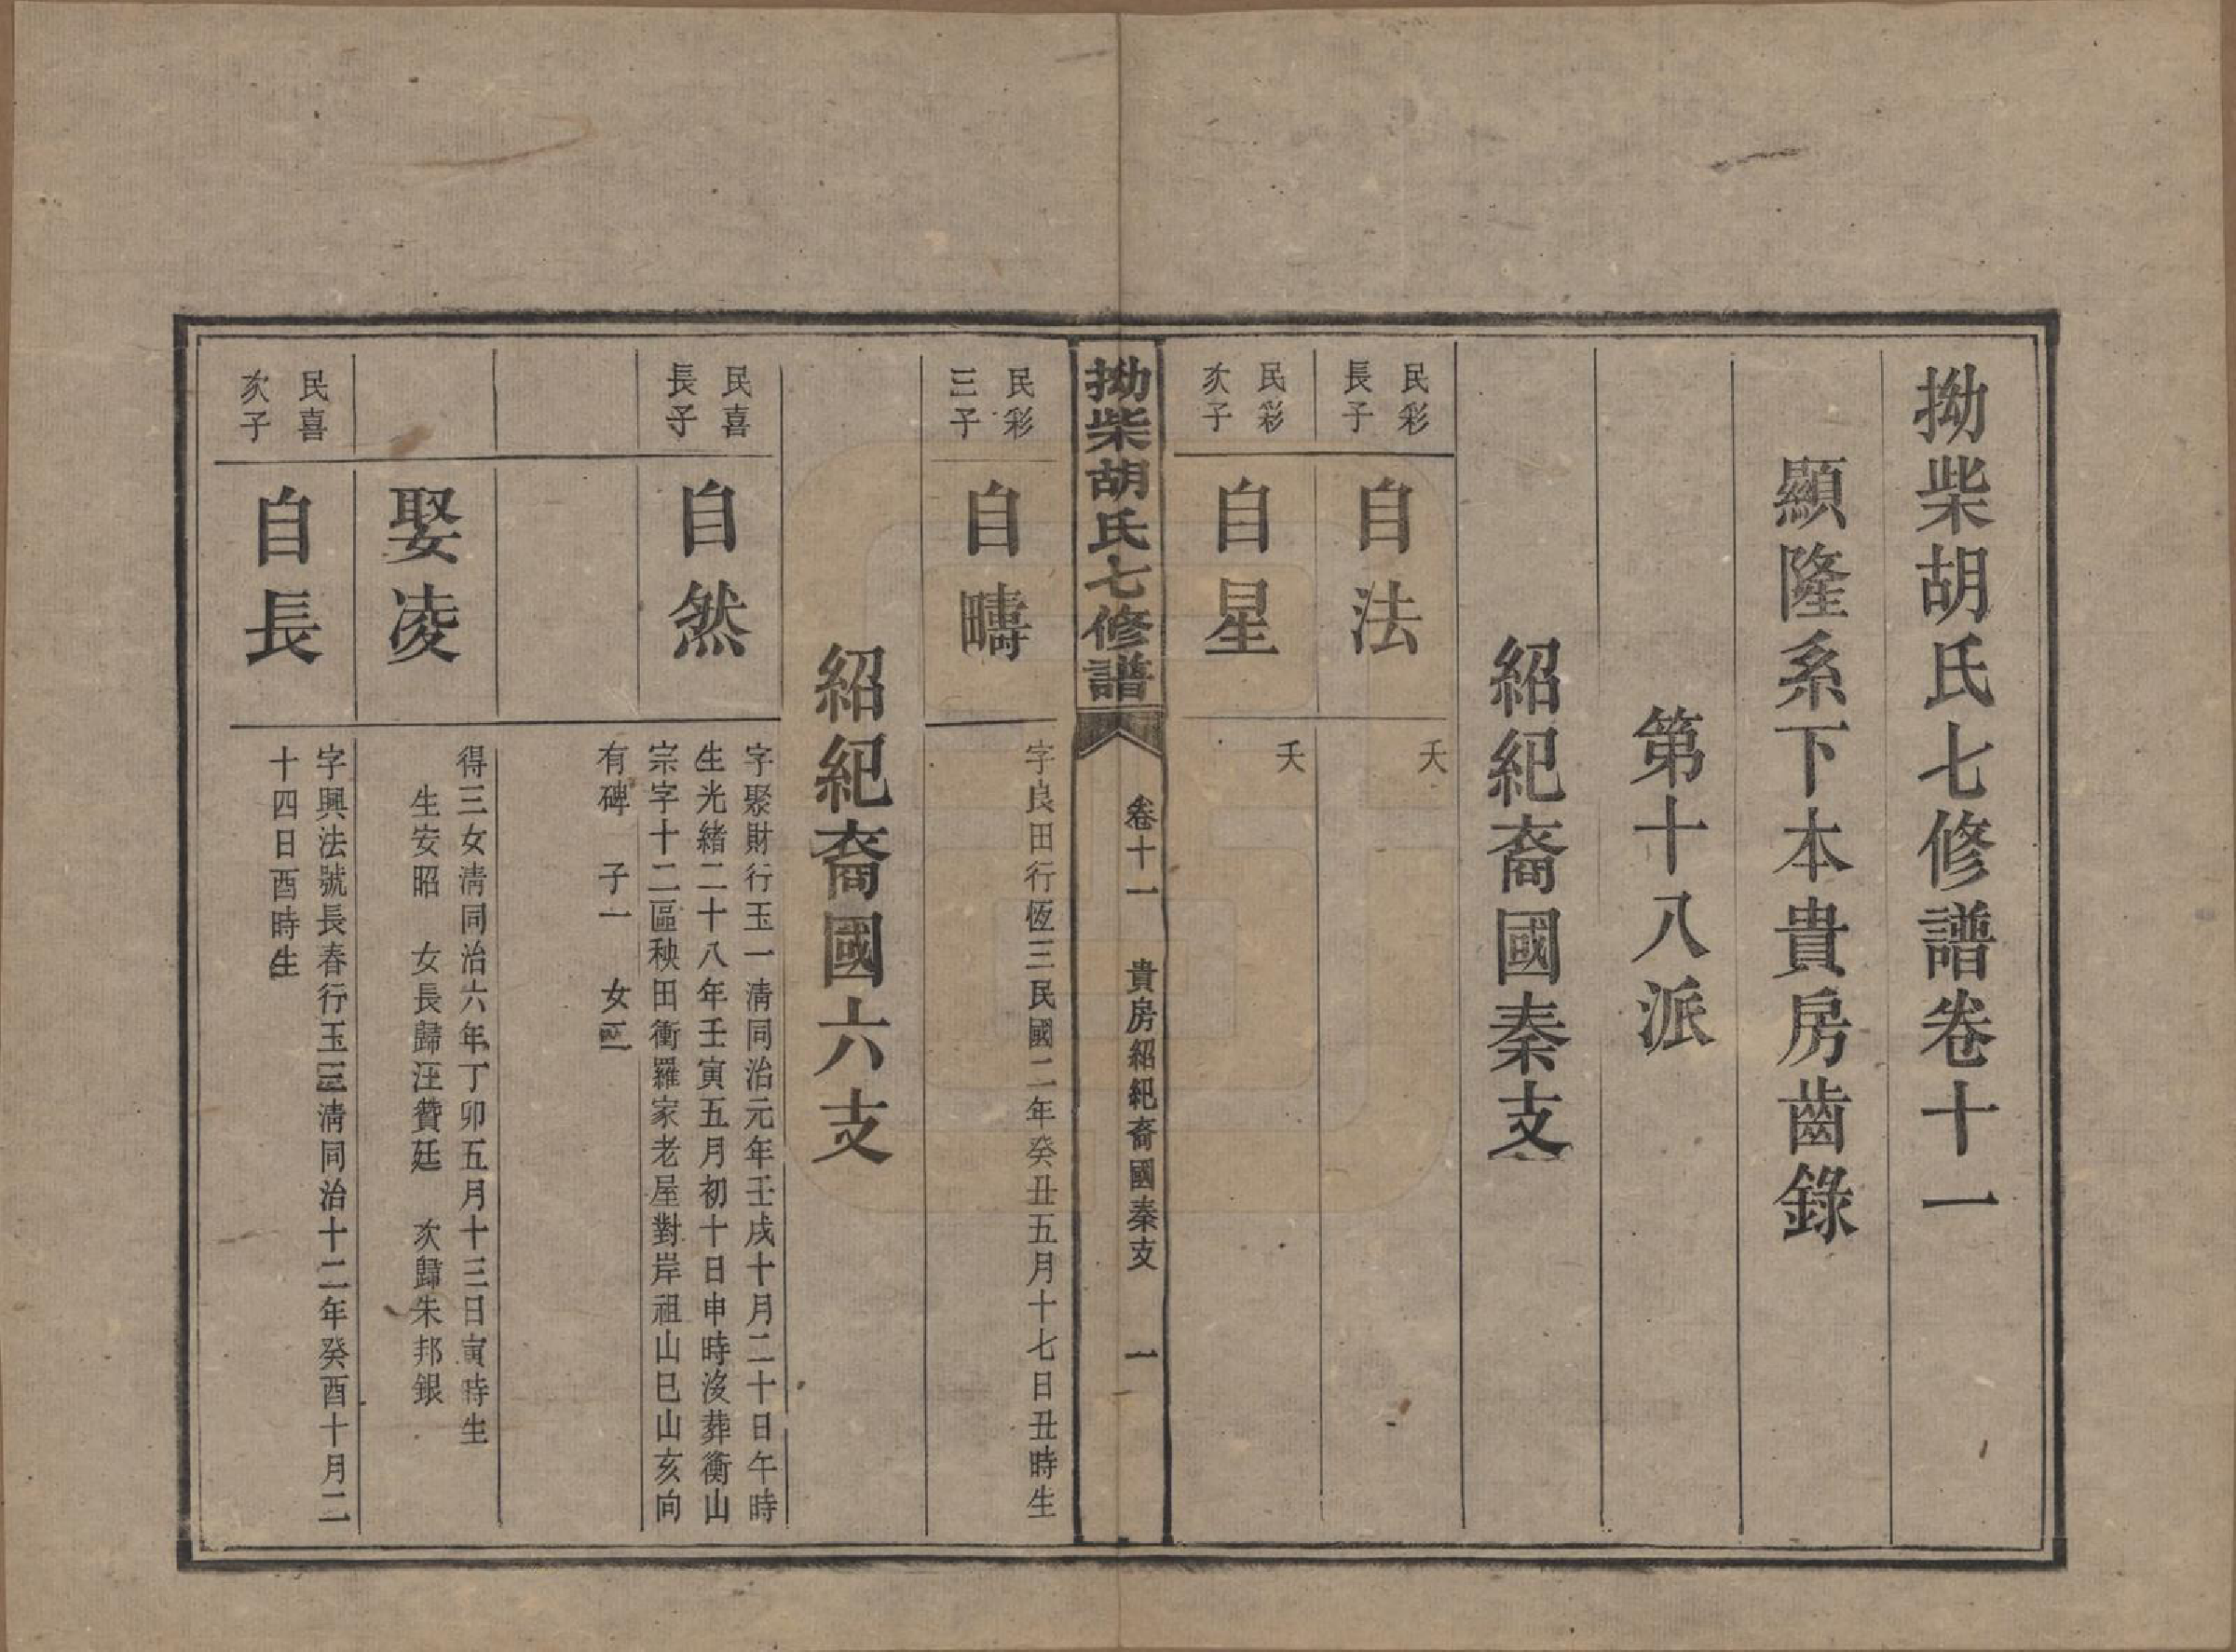 拗柴胡氏七修譜卷十一
顯隆系下本貴房齒錄
第十八派
紹紀裔國秦支
民彩
長子
自法
夭
民彩
次子
自星
夭
拗柴胡氏七修譜
卷十一
貴房紹紀裔國秦支
一
民彩
三子
自疇
字良田行恆三民國二年癸丑五月十七日丑時生
紹紀裔國六支
民喜
長子
自然
字聚財行玉一清同治元年壬戌十月二十日午時
生光緒二十八年壬寅五月初十日申時沒葬衡山
宗字十二區秧田衝羅家老屋對岸祖山巳山亥向
有碑 子一 女二
娶凌
得三女清同治六年丁卯五月十三日寅時生
生安昭 女長歸汪贊廷 次歸朱邦銀
民喜
次子
自長
字興法號長春行玉三清同治十二年癸酉十月二
十四日酉時生